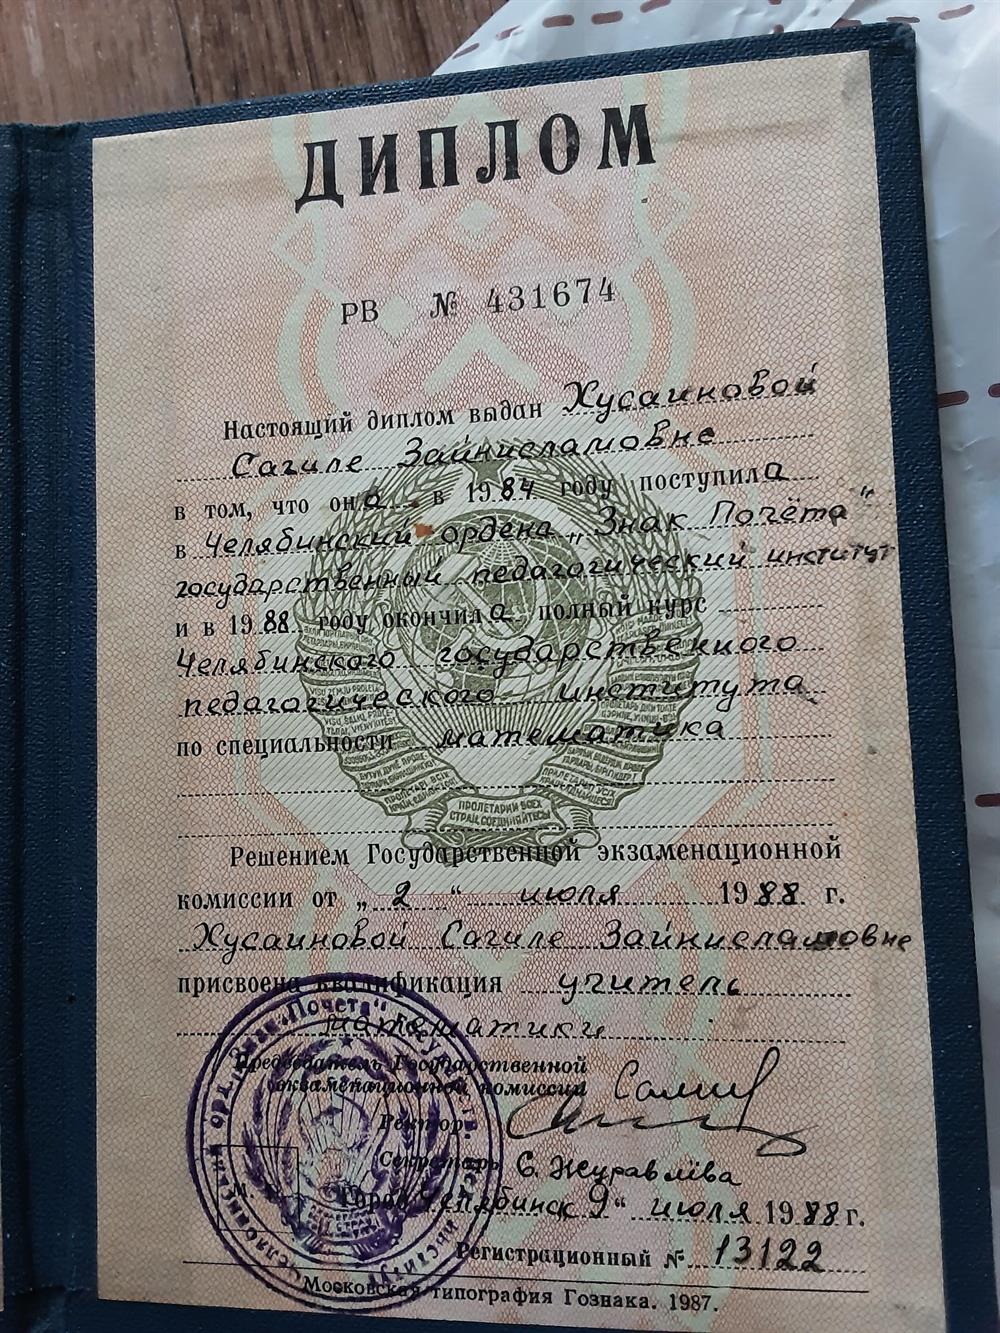 ДИПЛОМ
РВ № 431674
Настоящий диплом выдан Хусаиновой
Сагиле Зайнисламовне
в том, что она в 1984 году поступила
в Челябинский ордена „Знак Почёта"
государственный педагогический институт
и в 1988 году окончила полный курс
Челябинского государственного
педагогического института
по специальности математика
ПРОЛЕТАРИИ ВСЕХ
СТРАН, СОЕДИНЯЙТЕСЬ!
Решением Государственной экзаменационной
комиссии от „2" июля 1988 г.
Хусаиновой Сагиле Зайнисламовне
присвоена квалификация учитель
математики
Председатель Государственной
экзаменационной комиссии
Ректор
Секретарь Е. Журавлёва
Город Челябинск 9" июля 1988 г.
Регистрационный № 13122
Московская типография Гознака. 1987.